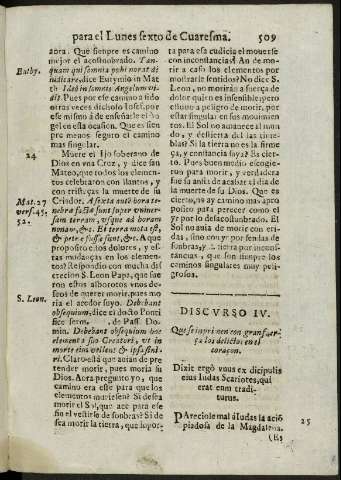 para el Lunes sexto de Cuaresma. 509
aora. Que siempre es camino
mejor el acostumbrado. Tan-
quam qui somnia prohi norat di
iudicare, dice Eutymio in Mat
th Ideò in somnis Angelum vi-
dit. Pues por ese camino a sido
otras veces dichoso Iosef, por
ese mismo à de enseñarle el An
gel en esta ocasion. Que es siem
pre menos seguro el camino
mas singular.
Euthy.
24
Muere el Ijo soberano de
Dios en vna Cruz, y dice san
Mateo, que todos los elemen-
tos celebraron con llantos, y
con tristeças la muerte de su
Criador. A sexta autẽ hora te-
nebræ factæ sunt super vniuer-
sam terram, vsque ad horam
nonam, &c. Et terra mota est,
& petræ scissæ sunt, &c. A que
proposito estos dolores, y es-
tas mudanças en los elemen-
tos? Respondio con mucha dis
crecion S. Leon Papa, que fue
ron estos alborotos vnos de-
seos de querer morir, pues mo
ria el acedor suyo. Debebant
obsequium, dice el docto Ponti
fice serm. de Pass. Do-
min. Debebant obsequium hoc
elementa suo Creatori, vt in
morte eius vellent & ipsa fini-
ri. Claro està que auian de pre
tender morir, pues moria su
Dios. Aora pregunto yo, que
camino era este para que los
elementos muriesen? Si desea
morir el Sol, que acè para ese
fin el vestirse de sonbras? Si de
sea morir la tierra, que inpor-
Mat. 27
vers. 45,
52.
S. Leon.
ta para esa cudicia el mouerse
con inconstancias? An de mo-
rir a caso los elementos por
mostrarse sentidos? No dice S.
Leon, no moriràn a fuerça de
dolor quien es insensible; pero
estuuo a peligro de morir, por
estar singular en sus mouimien
tos. El Sol no amanece luci-
do, y desierra del las tinie-
blas? Si la tierra no es la firme
ça, y constancia suya? Es cier-
to. Pues buen medio escogie-
ron para morir, y verdadera
fue su ansia de acabar el dia de
la muerte de su Dios. Que es
cierto, no ay camino mas apro
posito para perecer como el
yr por lo desacostunbrado. El
Sol no auia de morir con eri-
das, sino con yr por sendas de
sonbras, y la tierra por incons-
tancias, que son sienpre los
caminos singulares muy pel-
igrosos.
DISCVRSO IV.
Que se inprimen con gran fuer-
ça los delictos en el
coraçon.
Dixit ergò vnus ex dicipulis
eius Iudas Scariotes, qui
erat eum tradi-
turus.
PAreciole mal à Iudas la acciõ
piadosa de la Magdalena.
25
(Es)